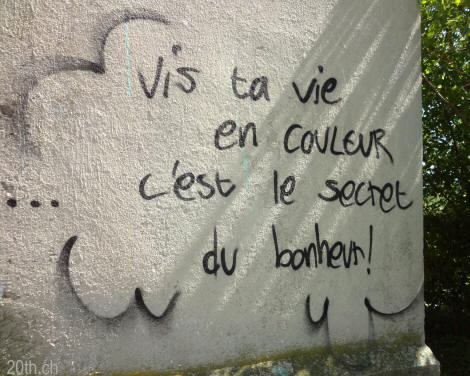 Vis ta vie
en COULEUR
... c'est le secret
du bonheur!
20th.ch